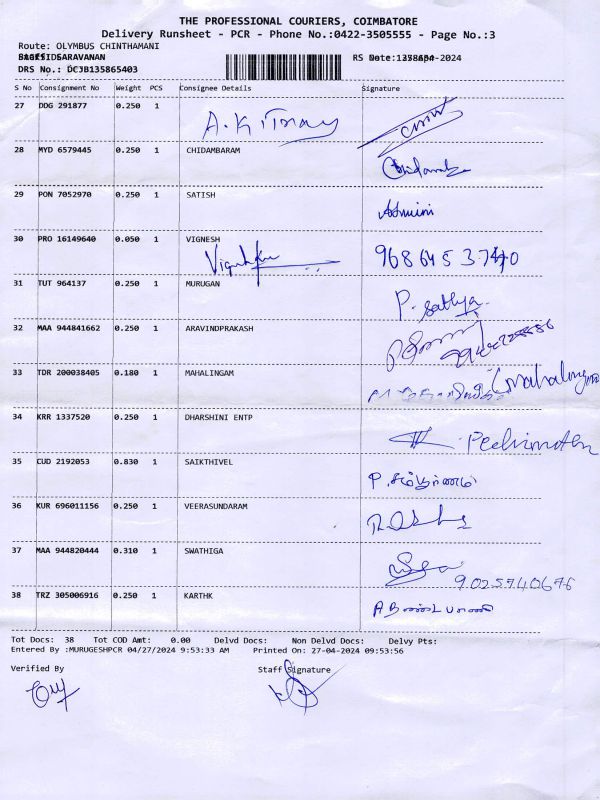 THE PROFESSIONAL COURIERS, COIMBATORE
Delivery Runsheet - PCR - Phone No.:0422-3505555 - Page No.:3
Route: OLYMBUS CHINTHAMANI
SARAVANAN RS -2024
DRS No.: DCJB135865403
S No Consignment No Weight PCS Consignee Details Signature
27 DDG 291877 0.250 1
28 MYD 6579445 0.250 1 CHIDAMBARAM
29 PON 7052970 0.250 1 SATISH Ashmini
30 PRO 16149640 0.050 1 VIGNESH
31 TUT 964137 0.250 1 MURUGAN P. Sathya
32 MAA 944841662 0.250 1 ARAVINDPRAKASH
33 TDR 200038405 0.180 1 MAHALINGAM
34 KRR 1337520 0.250 1 DHARSHINI ENTP
35 CUD 2192053 0.830 1 SAIKTHIVEL
36 KUR 696011156 0.250 1 VEERASUNDARAM
37 MAA 944820444 0.310 1 SWATHIGA 9025740676
38 TRZ 305006916 0.250 1 KARTHK
Tot Docs: 38 Tot COD Amt: 0.00 Delvd Docs: Non Delvd Docs: Delvy Pts:
Entered By :MURUGESHPCR 04/27/2024 9:53:33 AM Printed On: 27-04-2024 09:53:56
Verified By Staff Signature